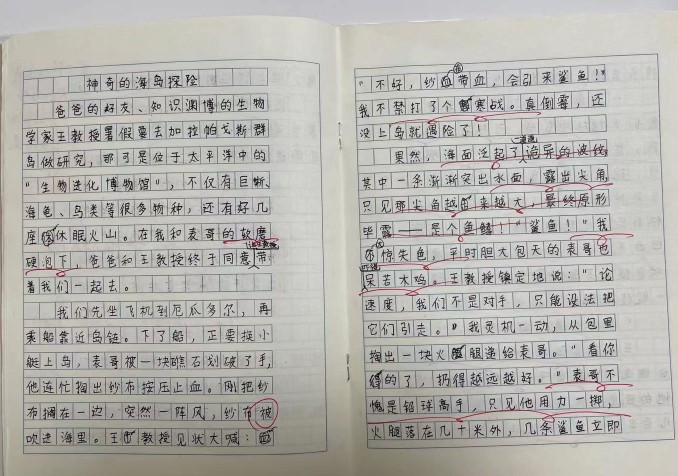 神奇的海岛探险
爸爸的好友、知识渊博的生物
学家王教授暑假要去加拉帕戈斯群
岛做研究，那可是位于太平洋中的
“生物进化博物馆”，不仅有巨蜥、
海龟、鸟类等很多物种，还有好几
座休眠火山。在我和表哥的软磨
硬泡下，爸爸和王教授终于同意带
着我们一起去。
我们先坐飞机到厄瓜多尔，再
乘船靠近岛链。下了船，正要换小
艇上岛，表哥被一块礁石划破了手，
他连忙掏出纱布按压止血。刚把纱
布搁在一边，突然一阵风，纱布被
吹进海里。王教授见状大喊：
“不好，纱布带血，会引来鲨鱼！”
我不禁打了个寒战。真倒霉，还
没上岛就遇险了！
果然，海面泛起了诡异的波纹，
其中一条渐渐突出水面，露出尖角，
只见那尖角越来越大，最终原形
毕露——是个鱼鳍！“鲨鱼！”我
大惊失色，平时胆大包天的表哥也
呆若木鸡。王教授镇定地说：“论
速度，我们不是对手，只能设法把
它们引走。”我灵机一动，从包里
掏出一块火腿递给表哥。“看你
的了，扔得越远越好。”表哥不
愧是铅球高手，只见他用力一掷，
火腿落在几十米外，几条鲨鱼立即